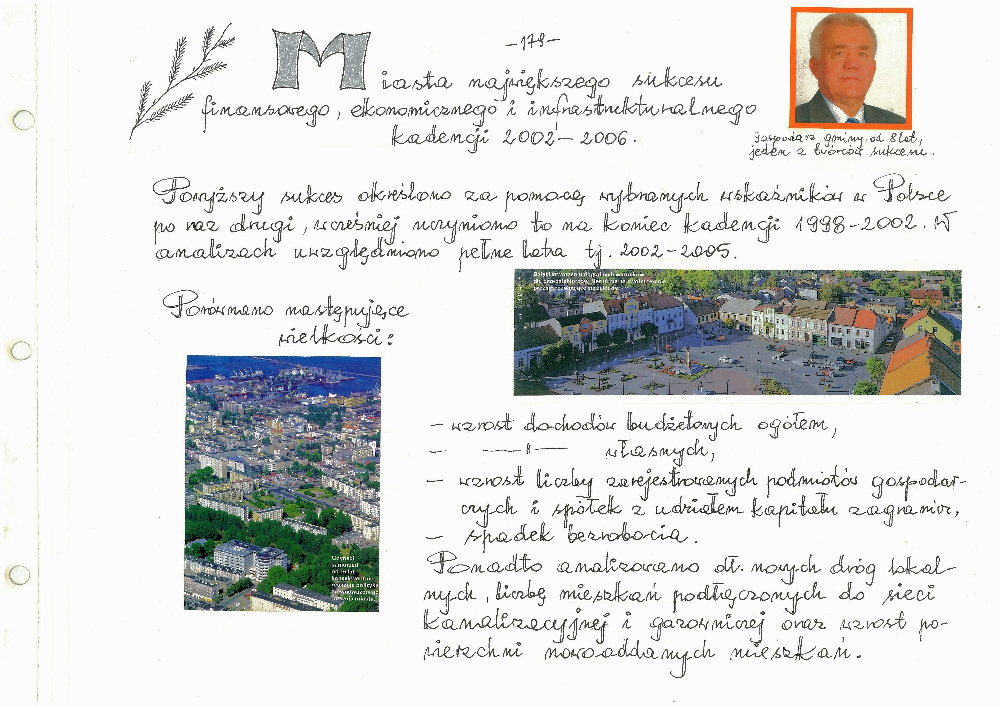 -179-
Miasta największego sukcesu
finansowego, ekonomicznego i infrastrukturalnego
kadencji 2002 - 2006.
Gospodarz gminy od 8 lat,
jeden z twórców sukcesu.
Powyższy sukces określono za pomocą wybranych wskaźników w Polsce
po raz drugi, wcześniej uczyniono to na koniec kadencji 1998-2002. W
analizach uwzględniono pełne lata tj. 2002-2005.
Porównano następujące
wielkości:
- wzrost dochodów budżetowych ogółem,
- —"— własnych,
- wzrost liczby zarejestrowanych podmiotów gospodar-
czych i spółek z udziałem kapitału zagranicz,
- spadek bezrobocia.
Ponadto analizowano dł. nowych dróg lokal-
nych, liczbę mieszkań podłączonych do sieci
kanalizacyjnej i gazowniczej oraz wzrost po-
wierzchni nowooddanych mieszkań.